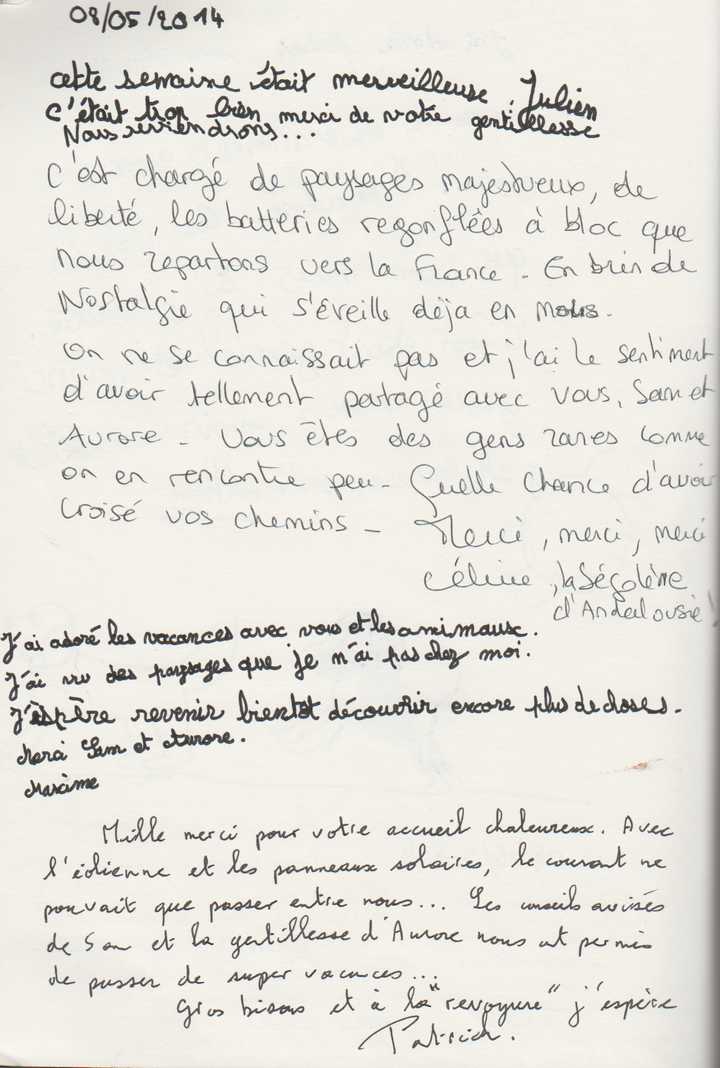 08/05/2014
cette semaine était merveilleuse Julien
c'était trop bien merci de votre gentillesse
Nous reviendrons...
C'est chargé de paysages majestueux, de
liberté, les batteries regonflées à bloc que
nous repartons vers la France - En brin de
Nostalgie qui s'éveille déja en nous.
On ne se connaissait pas et j'ai le sentiment
d'avoir tellement partagé avec vous, Sam et
Aurore - Vous êtes des gens rares comme
on en rencontre peu - Quelle chance d'avoir
croisé vos chemins - Merci, merci, merci
Céline, la Ségolène
d'Andalousie !
J'ai adoré les vacances avec vous et les animaux.
J'ai vu des paysages que je n'ai pas chez moi.
J'èspère revenir bientôt découvrir encore plus de choses.
Merci Sam et Aurore.
Maxime
Mille merci pour votre accueil chaleureux. Avec
l'éolienne et les panneaux solaires, le courant ne
pouvait que passer entre nous... Les conseils avisés
de Sam et la gentillesse d'Aurore nous ont permis
de passer de super vacances...
Gros bisous et à la "revoyure" j'espère
Patrick.